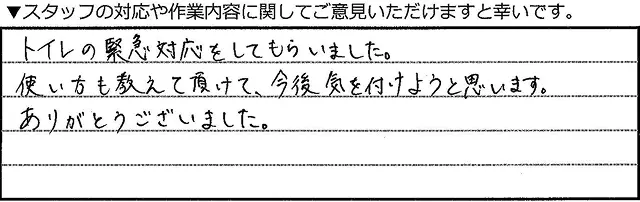 ▼スタッフの対応や作業内容に関してご意見いただけますと幸いです。
トイレの緊急対応をしてもらいました。
使い方も教えて頂けて、今後気を付けようと思います。
ありがとうございました。